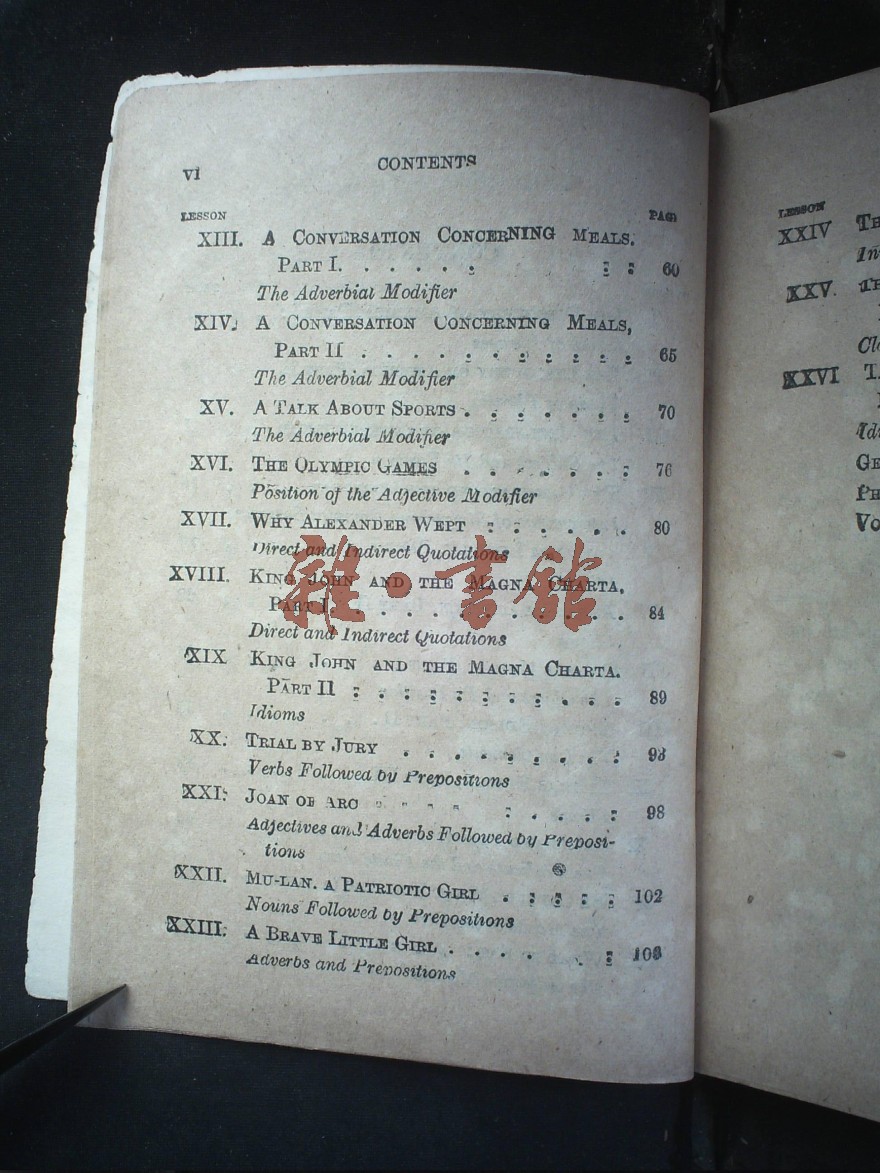 vi
CONTENTS
LESSON
PAGE
XIII. A CONVERSATION CONCERNING MEALS.
PART I. . . . . . : : 60
The Adverbial Modifier
XIV. A CONVERSATION CONCERNING MEALS,
PART II . . . . . . . . . . 65
The Adverbial Modifier
XV. A TALK ABOUT SPORTS . . . . . . . 70
The Adverbial Modifier
XVI. THE OLYMPIC GAMES . . . . . . . 76
Position of the Adjective Modifier
XVII. WHY ALEXANDER WEPT . . . . . . 80
Direct and Indirect Quotations
XVIII. KING JOHN AND THE MAGNA CHARTA.
PART I. . . . . . . . . . . . 84
Direct and Indirect Quotations
XIX KING JOHN AND THE MAGNA CHARTA.
PART II : : : : : : : : . . . 89
Idioms
XX. TRIAL BY JURY . . . . . . . . . 93
Verbs Followed by Prepositions
XXI. JOAN OF ARC . . . . . . . . . 98
Adjectives and Adverbs Followed by Preposi-
tions
XXII. MU-LAN. A PATRIOTIC GIRL . . . . . 102
Nouns Followed by Prepositions
XXIII. A BRAVE LITTLE GIRL . . . . . .
Adverbs and Prepositions
雜·書館
LESSON
XXIV
XXV.
XXVI